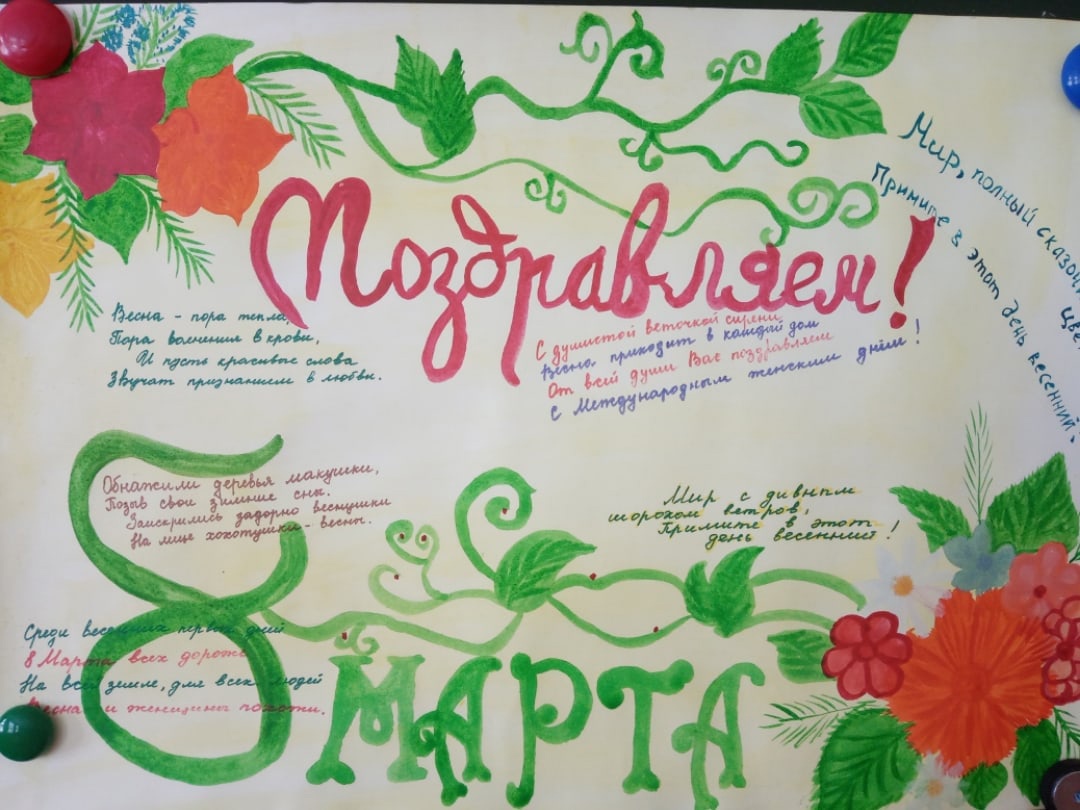 Поздравляем!
Мир, полный сказок,
Примите в этот день весенний!
Весна - пора тепла,
Пора волнения в крови,
И пусть красивые слова
Звучат признанием в любви.
С душистой веточкой сирени
Весна приходит в каждый дом
От всей души Вас поздравляем
С Международным женским днём!
Обнажили деревья макушки,
Позыв свои зимние сны.
Заискрились задорно веснушки
На лице хохотушки - весны.
Мир с дивным
шорохом ветров,
Примите в этот
день весенний!
Среди весенних первых дней
8 Марта всех дороже
На всей земле, для всех людей
Весна и женщины похожи.
8 МАРТА